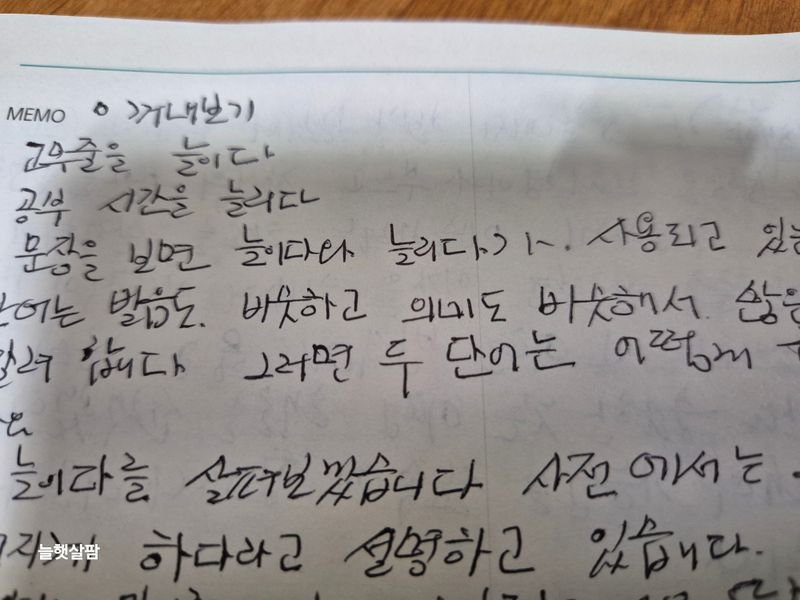 MEMO ○ 꺼내보기
고무줄을 늘이다
공부 시간을 늘리다
문장을 보면 늘이다와 늘리다가. 사용되고 있는
단어는 발음도. 비슷하고 의미도 비슷해서 많은
합니다 그러면 두 단어는 어떻게
요
늘이다를 살펴보겠습니다 사전에서는
하다라고 설명하고 있습니다.
늘햇살팜